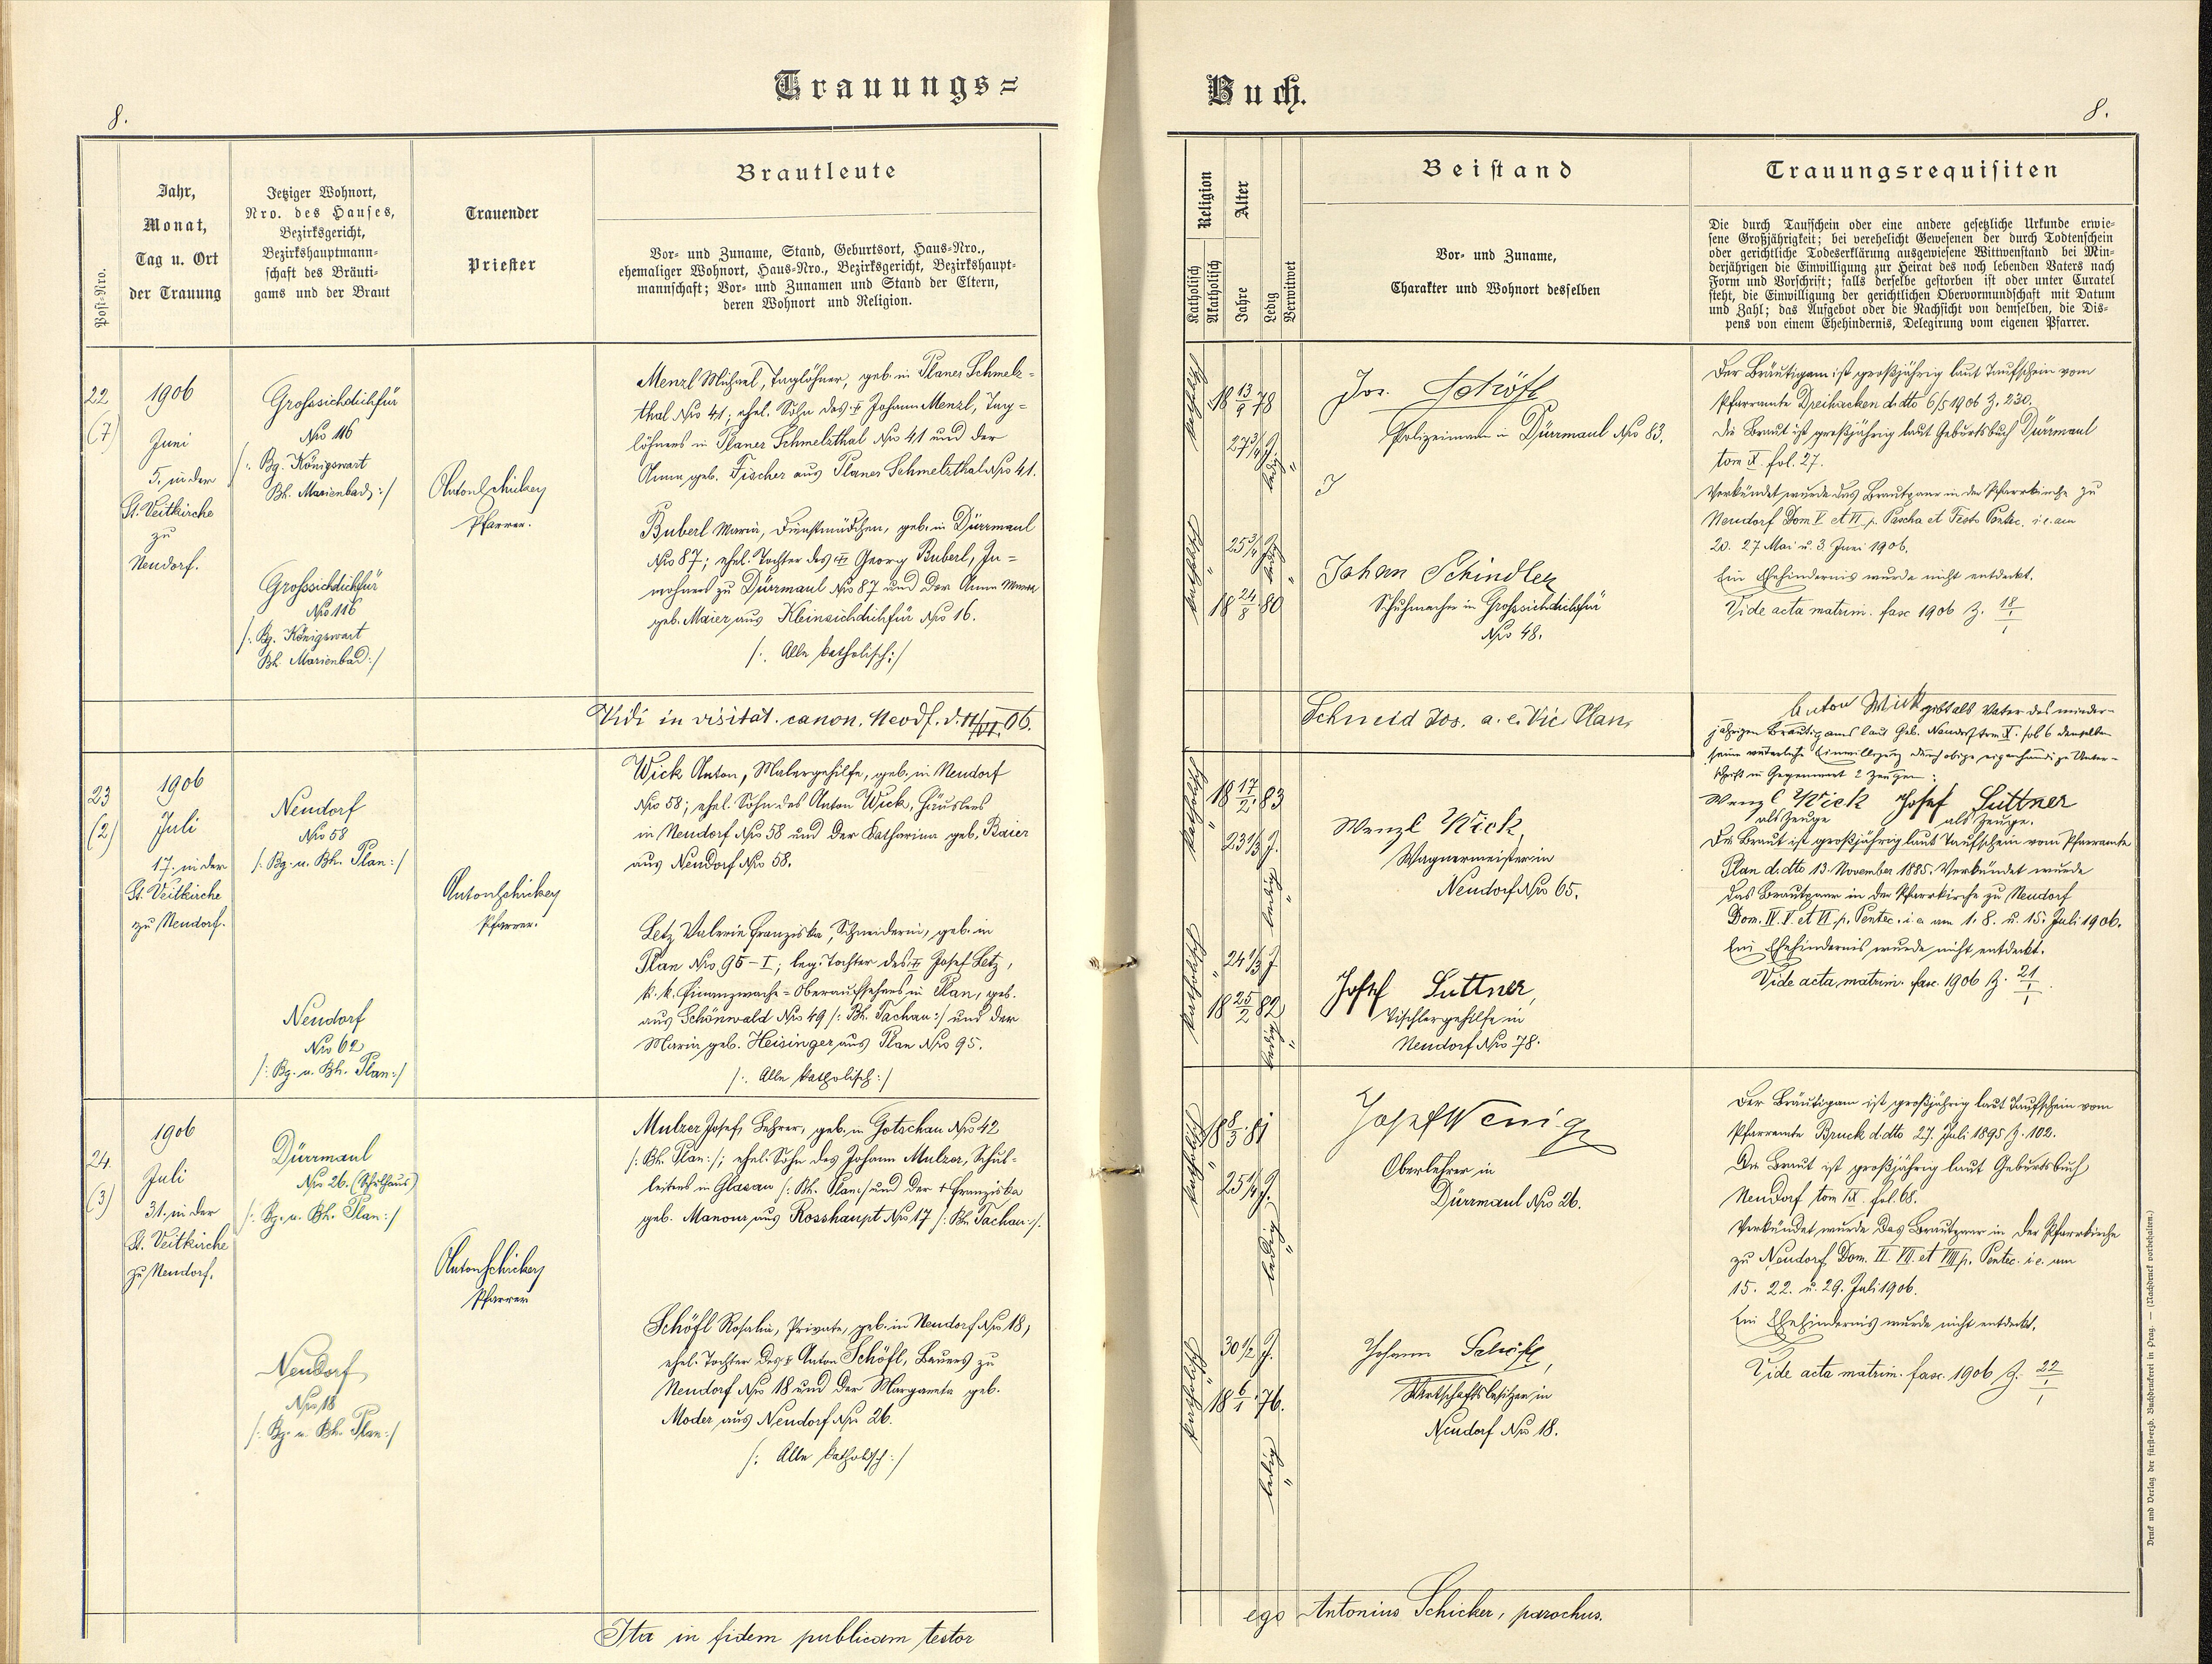 Trauungs=
8.
Post-Nro.
Jahr,
Monat,
Tag u. Ort
der Trauung
Jetziger Wohnort,
Nro. des Hauses,
Bezirksgericht,
Bezirkshauptmann-
schaft des Bräuti-
gams und der Braut
Trauender
Priester
Brautleute
Vor- und Zuname, Stand, Geburtsort, Haus-Nro.,
ehemaliger Wohnort, Haus-Nro., Bezirksgericht, Bezirkshaupt-
mannschaft; Vor- und Zunamen und Stand der Eltern,
deren Wohnort und Religion.
22
(7)
1906
Juni
5. in der
St. Veitkirche
zu
Neudorf.
Grosssichdichfür
Nro 116
/: Bg. Königswart
Bh. Marienbad :/
Grosssichdichfür
Nro 116
/: Bg. Königswart
Bh. Marienbad :/
Anton Schicker
Pfarrer.
Menzl Michael, Taglöhner, geb. in Planer Schmelz-
thal Nro 41; ehel. Sohn des † Johann Menzl, Tag-
löhners in Planer Schmelzthal Nro 41 und der
Anna geb. Fischer aus Planer Schmelzthal Nro 41.
Buberl Maria, Dienstmädchen, geb. in Dürrmaul
Nro 87; ehel. Tochter des Georg Buberl, In-
wohners zu Dürrmaul Nro 87 und der Anna
geb. Maier aus Kleinsichdichfür Nro 16.
/: Alle katholisch :/
Vidi in visitat. canon. Neodf. d. 11/VI. 06.
23
(2)
1906
Juli
17. in der
St. Veitkirche
zu Neudorf.
Neudorf
Nro 58
/: Bg. u. Bh. Plan :/
Neudorf
Nro 62
/: Bg. u. Bh. Plan :/
Anton Schicker
Pfarrer.
Wick Anton, Malergehilfe, geb. in Neudorf
Nro 58; ehel. Sohn des Anton Wick, Häuslers
in Neudorf Nro 58 und der Katharina geb. Baier
aus Neudorf Nro 58.
Letz Valerie Franziska, Schneiderin, geb. in
Plan Nro 95-I; leg. Tochter des Josef Letz,
k. k. Finanzwache-Oberaufsehers in Plan, geb.
aus Schönwald Nro 49 /: Bh. Tachau :/ und der
Maria geb. Heisinger aus Plan Nro 95.
/: Alle katholisch :/
24.
(3)
1906
Juli
31. in der
St. Veitkirche
zu Neudorf.
Dürrmaul
Nro 26. (Schulhaus)
/: Bg. u. Bh. Plan :/
Neudorf
Nro 18
/: Bg. u. Bh. Plan :/
Anton Schicker
Pfarrer
Mulzer Josef, Lehrer, geb. in Gotschau Nro 42
/: Bh. Plan :/; ehel. Sohn des Johann Mulzer, Schul-
leiters in Glasau /: Bh. Plan :/ und der † Franziska
geb. Manour aus Rosshaupt Nro 17 /: Bh. Tachau :/.
Schöfl Rosalia, Private, geb. in Neudorf Nro 18,
ehel. Tochter des † Anton Schöfl, Bauers zu
Neudorf Nro 18 und der Margareta geb.
Moder aus Neudorf Nro 26.
/: Alle katholisch :/
Ita in fidem publicam testor
Buch.
8.
Religion
Katholisch
Akatholisch
Alter
Jahre
Ledig
Verwitwet
Beistand
Vor- und Zuname,
Charakter und Wohnort desselben
Trauungsrequisiten
Die durch Taufschein oder eine andere gesetzliche Urkunde erwie-
sene Großjährigkeit; bei verehelicht Gewesenen der durch Todtenschein
oder gerichtliche Todeserklärung ausgewiesene Wittwenstand bei Min-
derjährigen die Einwilligung zur Heirat des noch lebenden Vaters nach
Form und Vorschrift; falls derselbe gestorben ist oder unter Curatel
steht, die Einwilligung der gerichtlichen Obervormundschaft mit Datum
und Zahl; das Aufgebot oder die Nachsicht von demselben, die Dis-
pens von einem Ehehindernis, Delegirung vom eigenen Pfarrer.
katholisch
18 13/9 78
27 3/4 J.
ledig
katholisch
25 3/4 J.
ledig
18 24/8 80
Jos. Schöfl
Polizeimann in Dürrmaul Nro 83.
Johan Schindler
Schuhmacher in Grosssichdichfür
Nro 48.
Der Bräutigam ist großjährig laut Taufschein vom
Pfarramte Dreihacken d.dto 6/5 1906 Z. 230.
Die Braut ist großjährig laut Geburtsbuch Dürrmaul
tom X. fol. 27.
Verkündet wurde das Brautpaar in der Pfarrkirche zu
Neudorf Dom V et VI p. Pascha et Festo Pentec. i. e. am
20. 27 Mai u. 3. Juni 1906.
Ein Ehehindernis wurde nicht entdeckt.
Vide acta matrim. fasc 1906 Z. 18/1
Schneid Jos. a. e. Vic. Plan.
Anton Wick gibt als Vater des minder-
jährigen Bräutigams laut Geb. Neudorf tom X. fol 6 demselben
seine väterliche Einwilligung durch obige eigenhändige Unter-
schrift in Gegenwart 2 Zeugen:
Wenzl Wick Josef Luttner
als Zeuge als Zeuge.
katholisch
18 17/2 83
23 1/3 J.
ledig
katholisch
24 1/3 J
18 25/2 82
ledig
Wenzl Wick,
Wagnermeister in
Neudorf Nro 65.
Josef Luttner,
Tischlergehilfe in
Neudorf Nro 78.
Die Braut ist großjährig laut Taufschein vom Pfarramte
Plan d.dto 13. November 1885. Verkündet wurde
das Brautpaar in der Pfarrkirche zu Neudorf
Dom. IV. V. et VI. p. Pentec. i. e. am 1. 8. u. 15. Juli 1906.
Ein Ehehindernis wurde nicht entdeckt.
Vide acta matrim. fasc. 1906 Z. 21/1
katholisch
18 8/3 81
25 1/4 J.
ledig
katholisch
30 1/2 J.
18 6/1 76.
ledig
Josef Wenig
Oberlehrer in
Dürrmaul Nro 26.
Johann Schöfl,
Wirtschaftsbesitzer in
Neudorf Nro 18.
Der Bräutigam ist großjährig laut Taufschein vom
Pfarramte Bruck d.dto 27. Juli 1895 Z. 102.
Die Braut ist großjährig laut Geburtsbuch
Neudorf tom IX. fol. 68.
Verkündet wurde das Brautpaar in der Pfarrkirche
zu Neudorf Dom. VI. VII. et VIII p. Pentec. i. e. am
15. 22. u. 29. Juli 1906.
Ein Ehehindernis wurde nicht entdeckt.
Vide acta matrim. fasc. 1906 Z. 22/1
ego Antonius Schicker, parochus.
Druck und Verlag der fürst-erzb. Buchdruckerei in Prag. — (Nachdruck vorbehalten.)